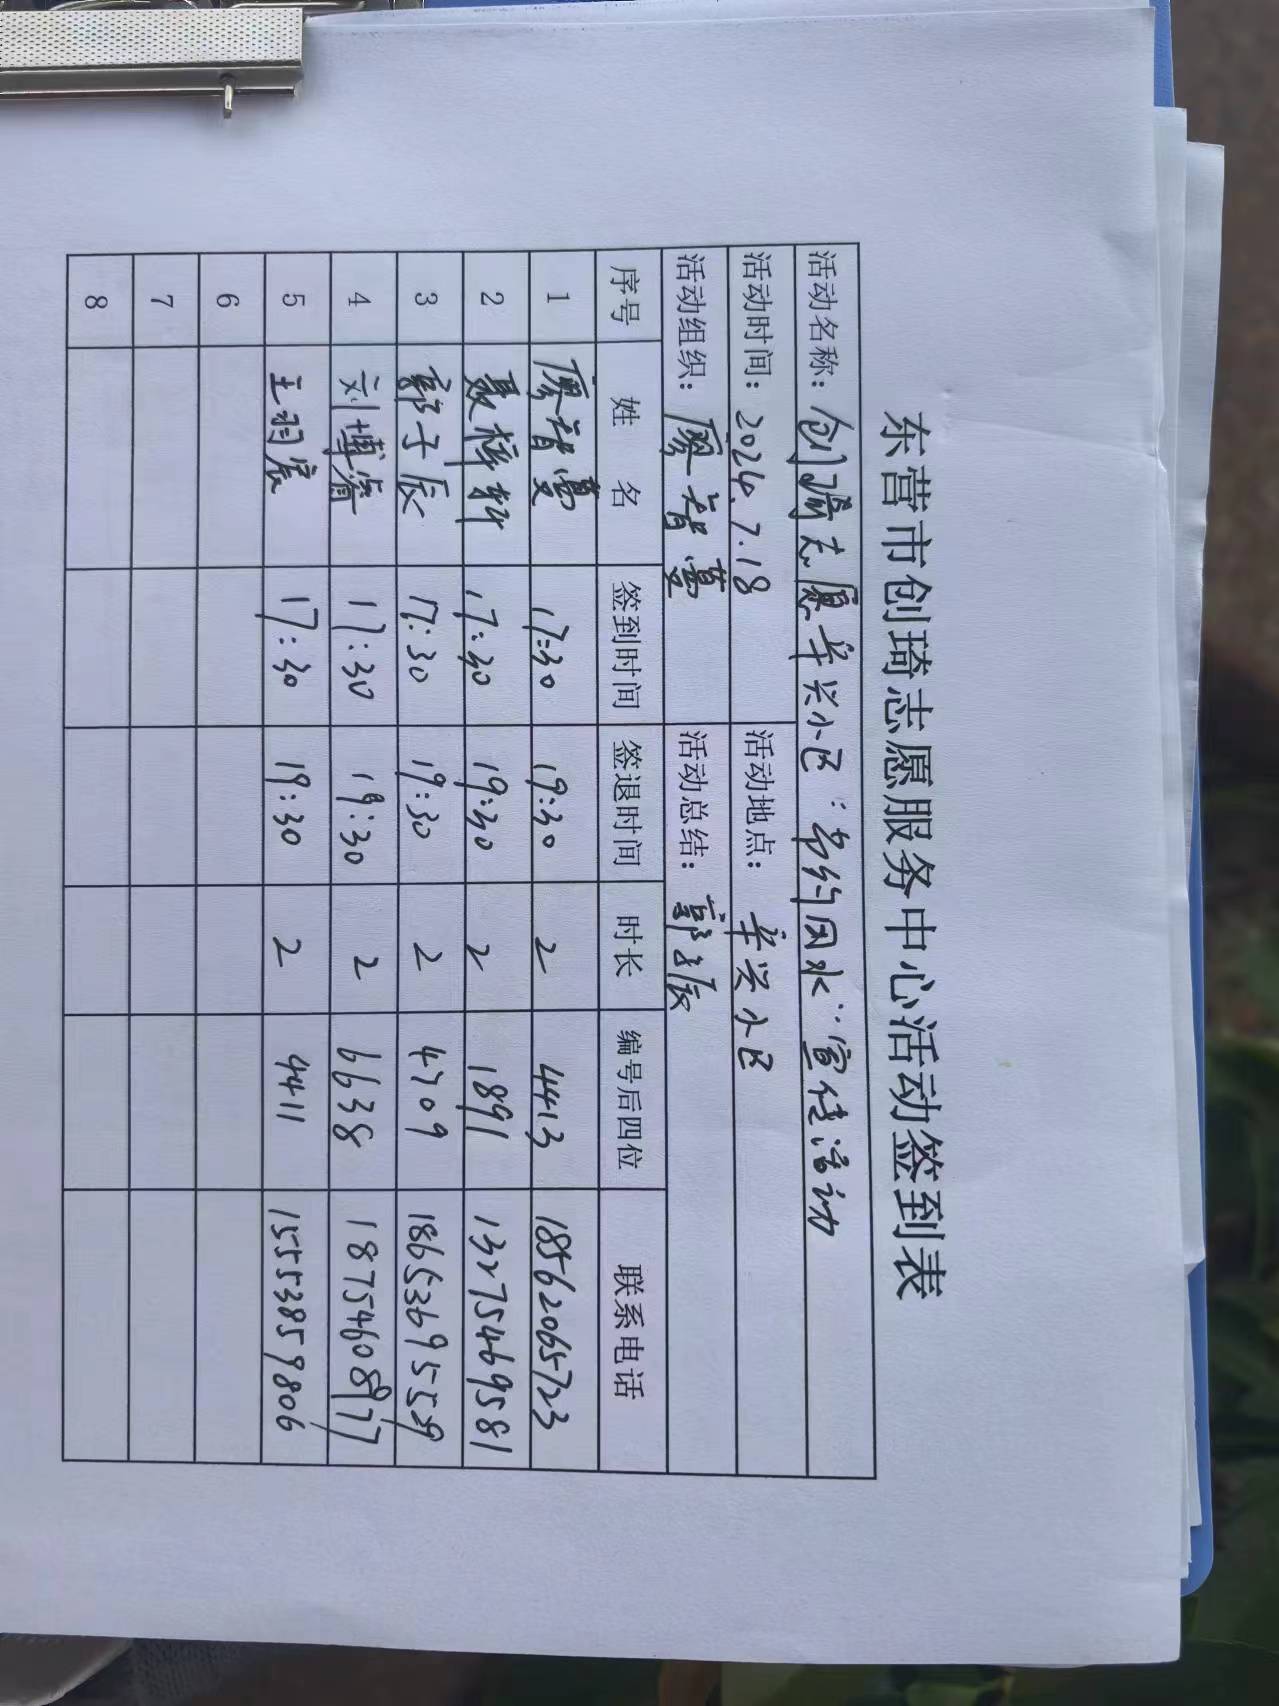 东营市创琦志愿服务中心活动签到表
活动名称：创琦志愿辛兴小区“节约用水”宣传活动
活动时间：2024.7.18 活动地点：辛兴小区
活动组织：廖智蕙 活动总结：郭子辰
序号 姓名 签到时间 签退时间 时长 编号后四位 联系电话
1 廖智蕙 17:30 19:30 2 4413 18562065723
2 聂梓轩 17:30 19:30 2 1891 13275469581
3 郭子辰 17:30 19:30 2 4709 18653695559
4 刘博睿 17:30 19:30 2 6638 18754608977
5 王羽宸 17:30 19:30 2 4411 15553859806
6
7
8